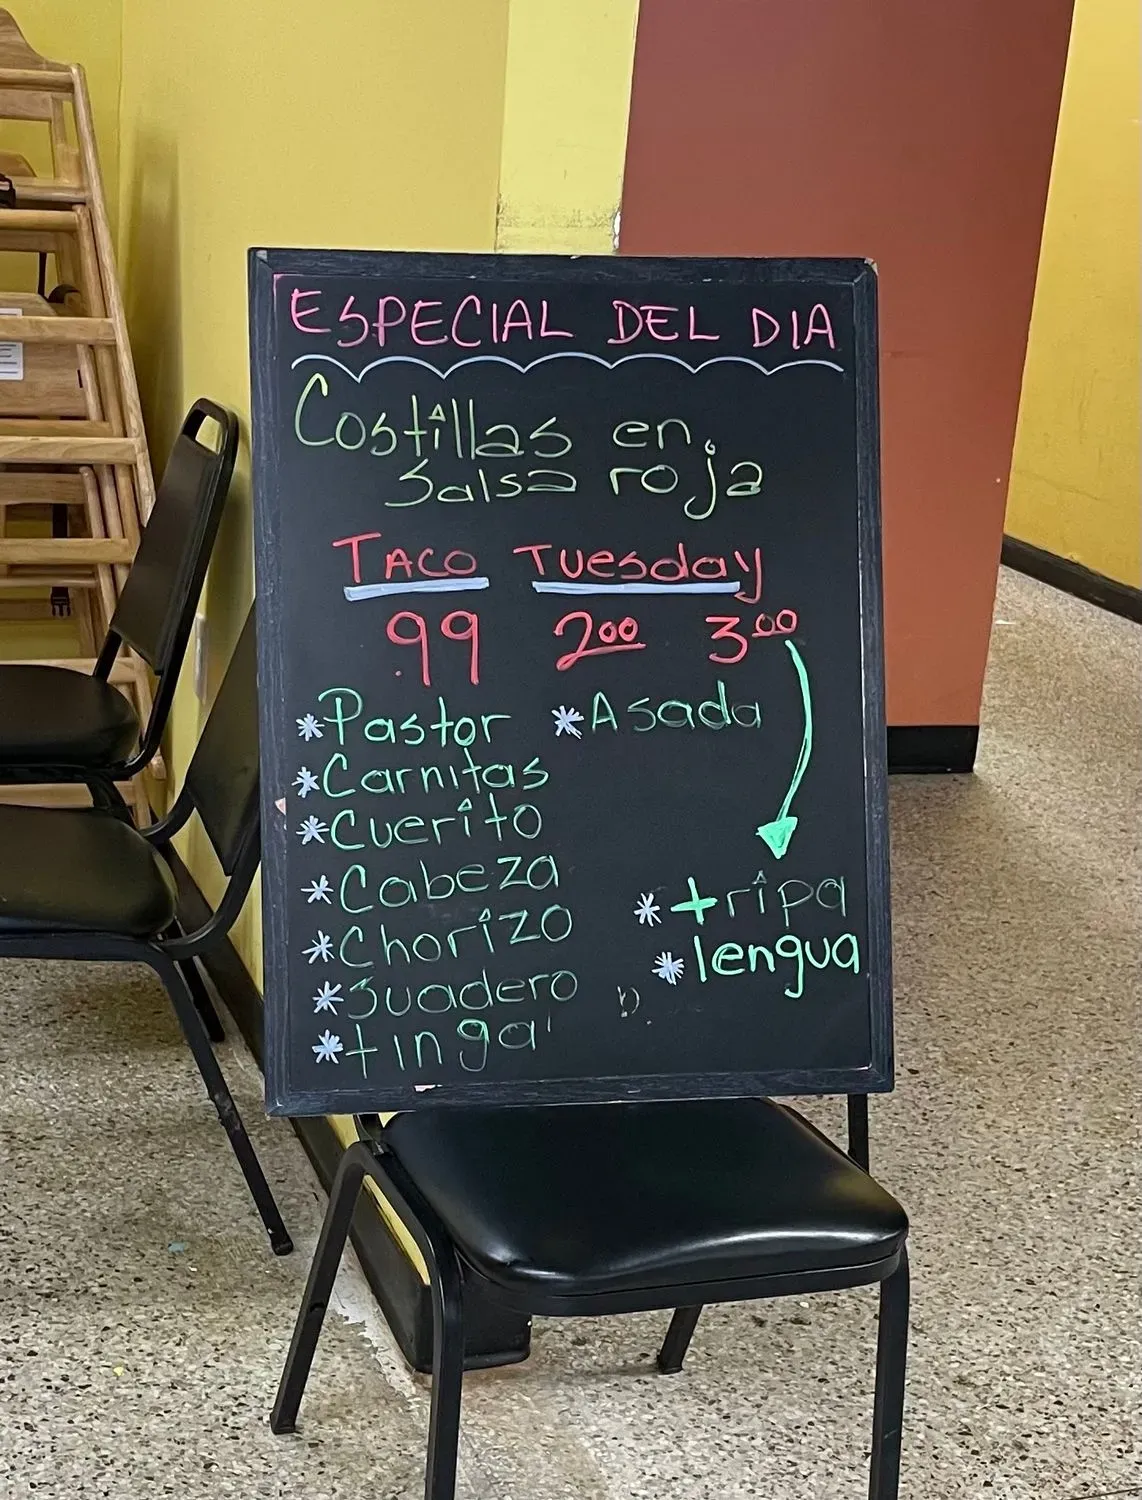 ESPECIAL DEL DIA
Costillas en
Salsa roja
TACO Tuesday
.99 2.00 3.00
*Pastor *Asada
*Carnitas
*Cuerito
*Cabeza
*Chorizo
*Suadero
*tinga
*tripa
*lengua